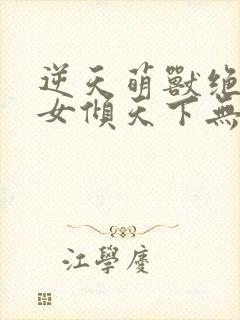 逆天萌獸絶
女傾天下無
江學慶